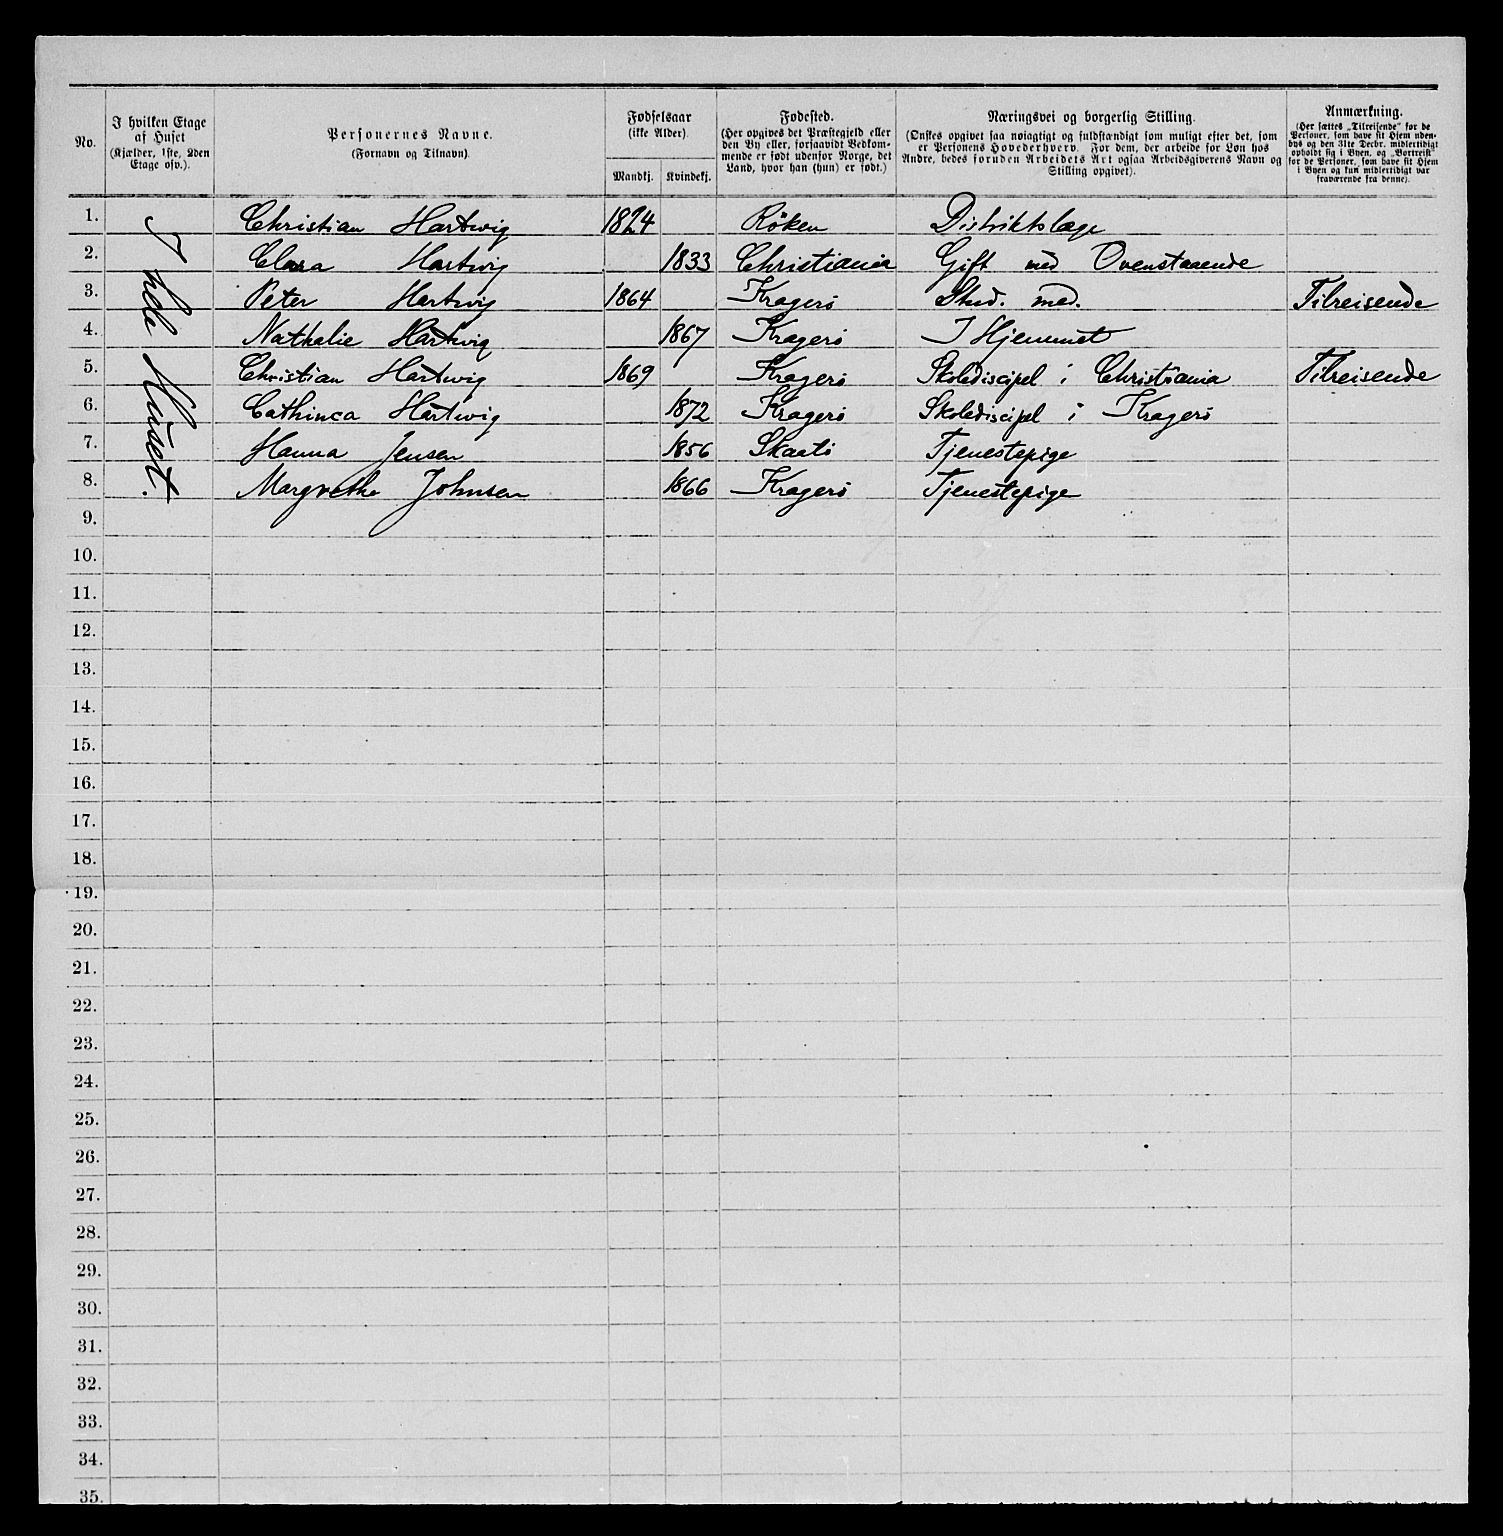 No.
I hvilken Etage
af Huset
(Kjælder, 1ste, 2den
Etage osv.).
Personernes Navne.
(Fornavn og Tilnavn).
Fødselsaar
(ikke Alder).
Mandkj. Kvindekj.
Fødested.
(Her opgives det Præstegjeld eller
den By eller, forsaavidt Vedkom-
mende er født udenfor Norge, det
Land, hvor han (hun) er født.)
Næringsvei og borgerlig Stilling.
(Ønskes opgivet saa nøiagtigt og fuldstændigt som muligt efter det, som
er Personens Hovederhverv. For dem, der arbeide for Løn hos
Andre, bedes foruden Arbeidets Art ogsaa Arbeidsgiverens Navn og
Stilling opgivet).
Anmærkning.
(Her sættes „Tilreisende" for de
Personer, som have sit Hjem uden-
bys og den 31te Decbr. midlertidigt
opholdt sig i Byen, og „Bortreist"
for de Personer, som have sit Hjem
i Byen og kun midlertidigt var
fraværende fra denne).
I hele Huset.
1. Christian Hartwig 1824 Röken Distriktslæge
2. Clara Hartwig 1833 Christiania Gift med Ovenstaaende
3. Peter Hartwig 1864 Kragerö Stud. med. Tilreisende
4. Nathalie Hartwig 1867 Kragerö I Hjemmet
5. Christian Hartwig 1869 Kragerö Skolediscipel i Christiania Tilreisende
6. Cathinca Hartwig 1872 Kragerö Skolediscipel i Kragerö
7. Hanna Jensen 1856 Skaatö Tjenestepige
8. Margrethe Johnsen 1866 Kragerö Tjenestepige
9.
10.
11.
12.
13.
14.
15.
16.
17.
18.
19.
20.
21.
22.
23.
24.
25.
26.
27.
28.
29.
30.
31.
32.
33.
34.
35.